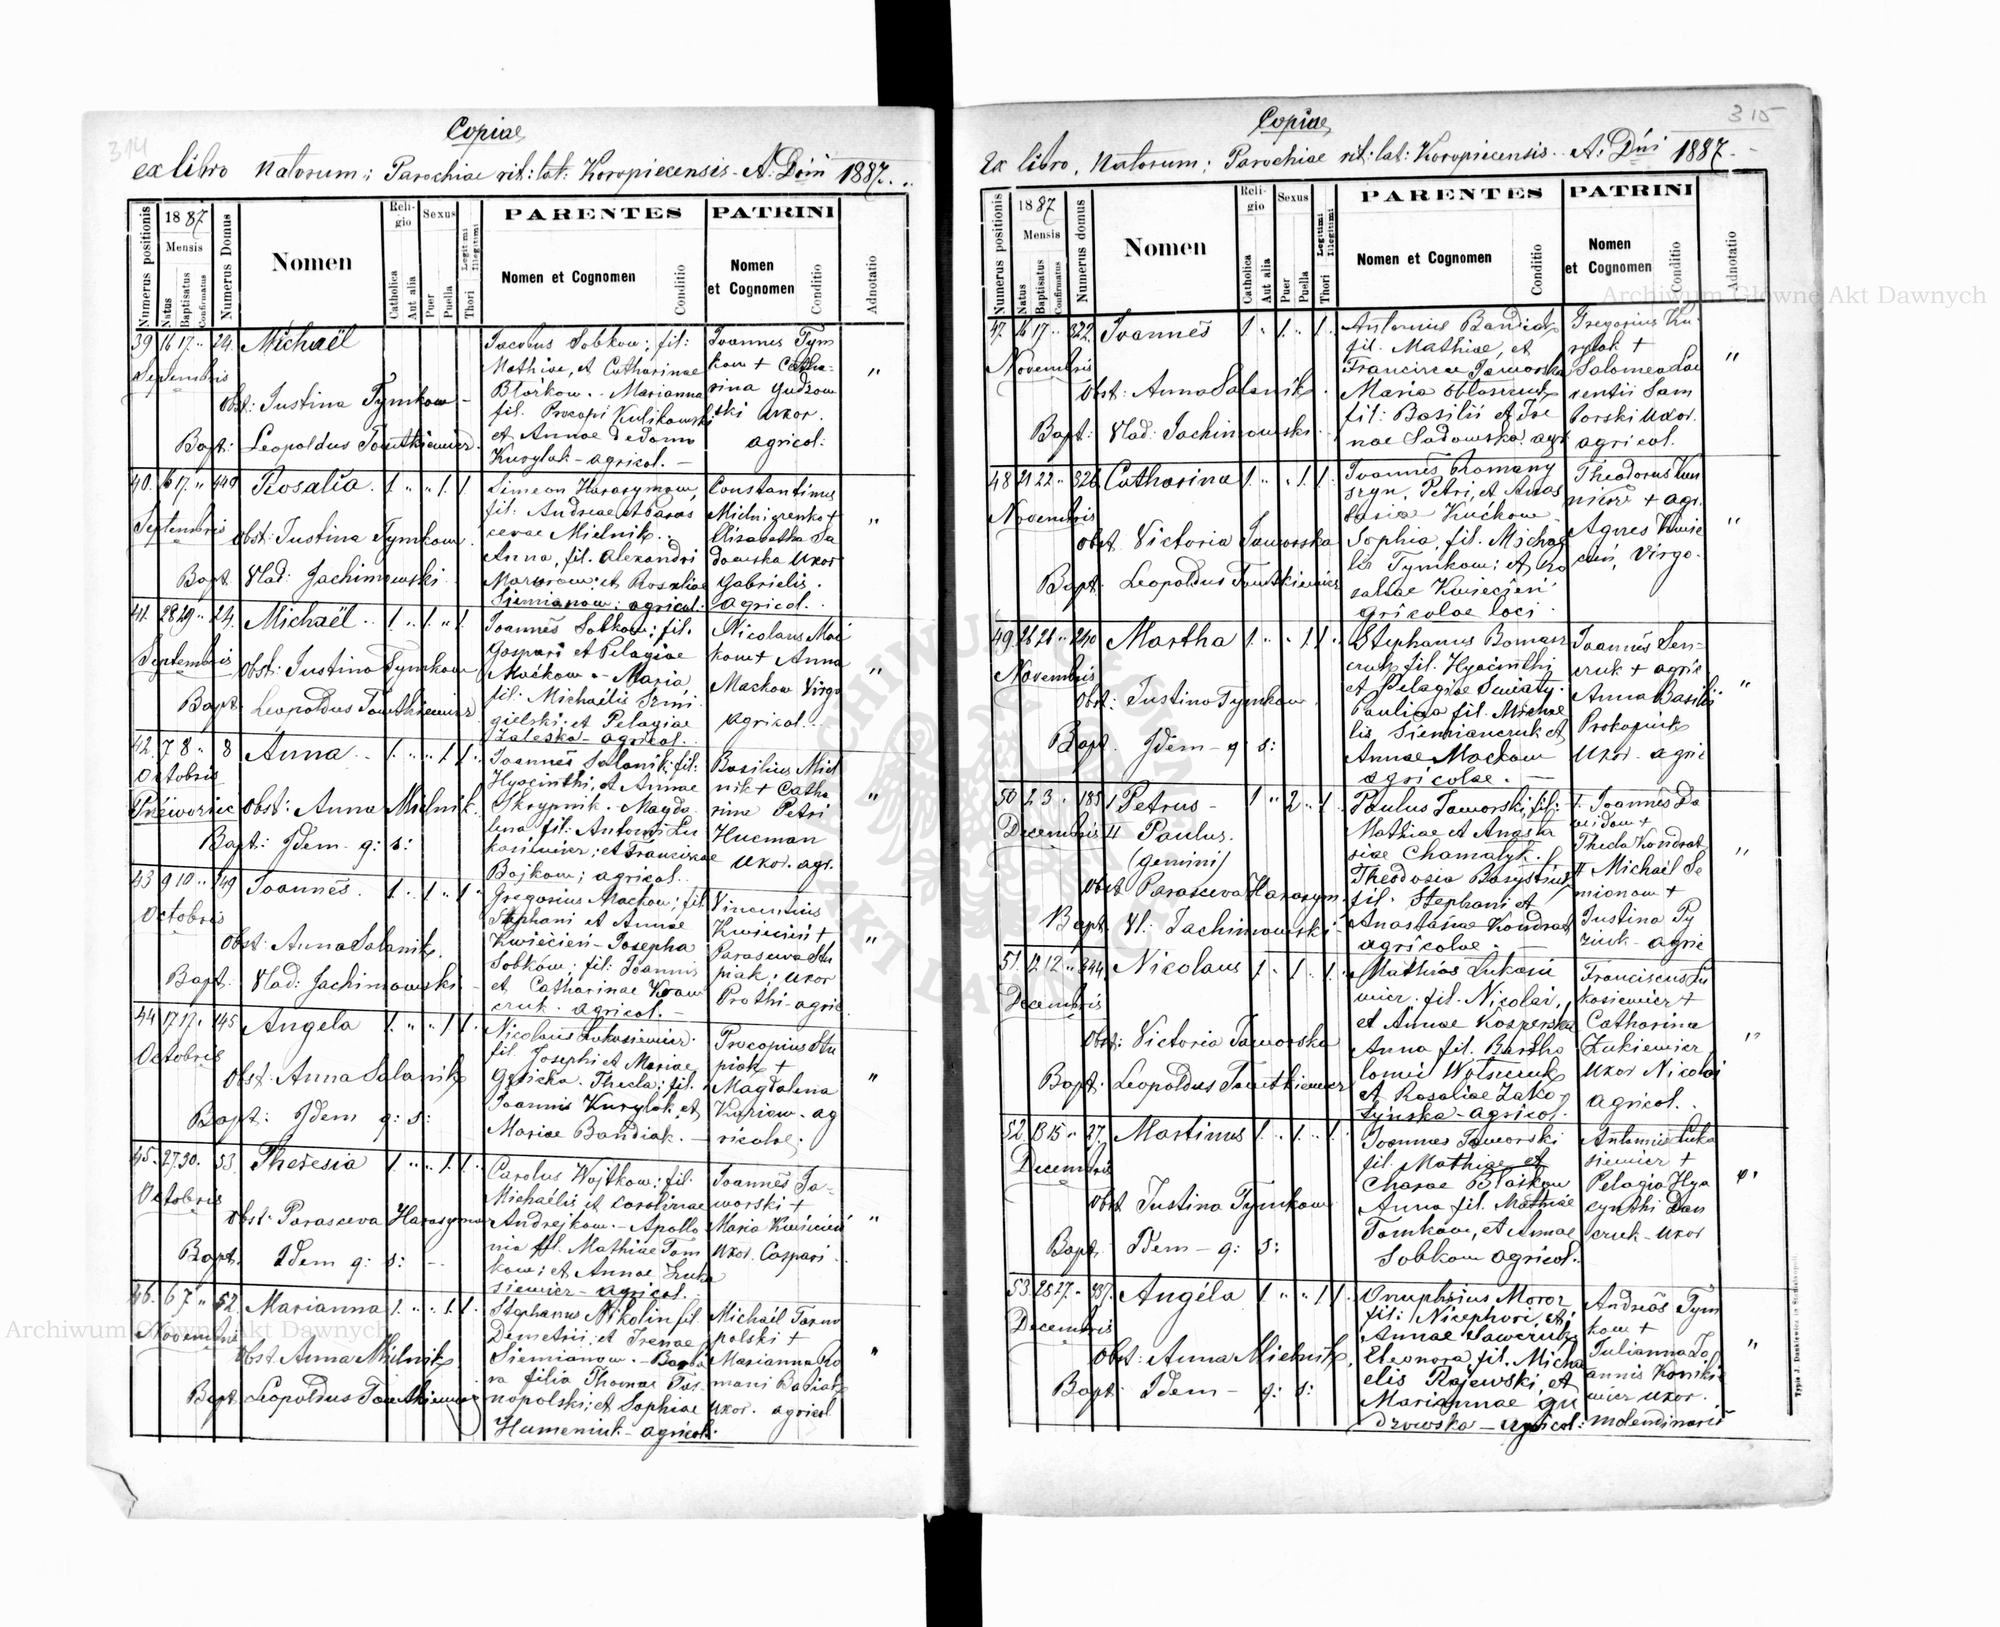 314
Copiae
ex libro Natorum; Parochiae rit: lat: Koropiecensis - A: Dni 1887.
Numerus positionis
1887
Mensis
Natus
Baptisatus
Confirmatus
Numerus Domus
Nomen
Religio
Catholica
Aut alia
Sexus
Puer
Puella
Legitimi
Illegitimi
Thori
PARENTES
Nomen et Cognomen
Conditio
PATRINI
Nomen
et Cognomen
Conditio
Adnotatio
39 16 17 " 24. Michaël
Septembris
Obst: Justina Tymkow -
Bapt: Leopoldus
Jacobus Sobkow; fil:
Mathiae, et Catharinae
Marianna
fil. Procopi Kulikowski
et Annae de domo
Kurylak - agricol. -
Joannes Tym
kow + Catha-
rina Gudzow
ski uxor.
agricol:
"
40. 16 17. " 440 Rosalia. 1. " " 1. 1.
Septembris
obst: Justina Tymkow.
Bapt. Vlad: Jachimowski.
Simeon Harasymow,
fil. Andreae et Paras
cevae Mielnik.
Anna, fil. Alexandri
et Rosaliae
Siemianow: agricol.
Constantinus
Elisabetha Sa
dowska uxor
Gabrielis.
agricol.
"
41. 28 29 " 24. Michaël.. 1. " 1. " 1.
Septembris
obst: Justina Tymkow
Bapt. Leopoldus
Joannes Sobkow; fil.
Gaspari et Pelagiae
Maćkow - Maria
fil. Michaëlis Szmi
gielski; et Pelagiae
Zaleska - agricol.
Nicolaus Mać
kow + Anna
Mackow Virgo
agricol.
"
42. 7 8 " 8 Anna.. 1. " " 1. 1.
Octobris
obst: Anna Mielnik.
Bapt: Idem - q: s:
Joannes Salanik fil:
Hyacinthi, et Annae
Skrypnik. Magda
lena fil: Antoni Lu
kasiewicz; et Franciscae
Bojkow; agricol.
Basilius Miel
nik + Catha
rina Petri
Hucman
uxor. agr.
"
43 9 10 " 149 Joannes. 1. " 1. " 1.
Octobris
Obst: Anna Salanik.
Bapt. Vlad: Jachimowski.
Gregorius Mackow; fil.
Stephani et Annae
Kwiecień - Josepha
Sobkow; fil: Joannis
et Catharinae Kraw
czuk. agricol. -
Vincentius
Kwiecień +
Parasceva Stu
piak; uxor
Prothi - agric.
"
44 17 17. " 145 Angela 1. " " 1. 1.
Octobris
Obst: Anna Salanik
Bapt: Idem q: s:
Nicolaus Lukasiewicz.
fil. Josephi et Mariae
Thecla; fil.
Joannis Kurylak, et
Mariae Bandiak. -
Procopius Stu
piak +
Magdalena
ag
ricolae;
"
45. 27 30. " 53. Theresia 1. " " 1. 1.
Octobris
Obst: Parasceva Harasymow
Bapt. Idem q: s:
Carolus Wojtkow; fil.
Michaëlis et Carolinae
Andrejkow - Apollo
nia fil. Mathiae Tom
kow; et Annae Luka
siewicz - agricol.
Joannes Ja-
worski +
Maria Kwiecień
uxor. Caspari.
"
46. 6 7 " 52. Marianna 1. " " 1. 1.
Novembris
Obst: Anna Mielnik
Bapt: Leopoldus
Stephanus Nikolin fil.
Demetrii; et Irenae
Siemianow. - Barba
ra filia Thomae Tar
nopolski; et Sophiae
Humeniuk - agricol:
Michaël Tarno
polski +
Marianna Ro
mani
uxor. agricol
"
315
Copiae
Ex libro, Natorum; Parochiae rit: lat: Koropiecensis. A: Dni 1887. -
Numerus positionis
1887
Mensis
Natus
Baptisatus
Confirmatus
Numerus domus
Nomen
Religio
Catholica
Aut alia
Sexus
Puer
Puella
Legitimi
Illegitimi
Thori
PARENTES
Nomen et Cognomen
Conditio
PATRINI
Nomen
et Cognomen
Conditio
Adnotatio
47. 16 17 " 322. Joannes 1. " 1. " 1.
Novembris
Obst: Anna Salanik.
Bapt: Vlad: Jachimowski.
Antonius Bandiak
fil. Mathiae, et
Franciscae Jaworska
Maria
fil: Basilii et Ire
nae Sadowska agr
Gregorius Ku-
rylak +
Salomea Lau
rentii Sam
borski uxor.
agricol.
"
48 21 22 " 326. Catharina 1. " " 1. 1.
Novembris
obst. Victoria Jaworska
Bapt: Leopoldus
Joannes Romany
szyn, Petri, et Anas
tasiae
Sophia, fil. Michae
lis Tymkow; et Ro
saliae Kwiecień
agricolae loci.
Theodorus
+ agr.
Agnes Kwie
cień, Virgo.
"
49. 26 26 " 240 Martha 1. " " 1. 1.
Novembris
Obst: Justina Tymkow.
Bapt. Idem - q: s:
Stephanus
fil. Hyacinthi
et Pelagiae
Paulina fil. Michae
lis Siemianczuk et
Annae Mackow
agricolae. -
Joannes Sen-
czuk + agric
Anna Basilii
Prokopiuk
uxor - agric
"
50 2 3 " 185 I Petrus - 1 " 2 " 1.
Decembris II Paulus.
(gemini)
Obst Parasceva Harasym.
Bapt. Vl: Jachimowski -
Paulus Jaworski, fil:
Mathiae et Anasta
siae
Theodosia
fil. Stephani et
Anastasiae Kondrat
agricolae. -
I. Joannes Da
widow +
Thecla Kondrat
II Michaël Se
mionow +
Justina
agric
"
51. 12 12 " 344. Nicolaus 1. " 1. " 1.
Decembris
Obst: Victoria Jaworska
Bapt: Leopoldus
Mathias Lukasie
wicz. fil. Nicolai,
et Annae
Anna fil. Bartho
lomei
et Rosaliae Zako-
- agricol.
Franciscus Lu
kasiewicz +
Catharina
Lukiewicz
uxor Nicolai
agricol.
"
52. 13 15 " 27. Martinus 1. " 1. " 1.
Decembris
Obst Justina Tymkow
Bapt: Idem - q: s:
Joannes Jaworski
fil. Mathiae et
Anna fil. Mathiae
Tomkow, et Annae
Sobkow agricol.
Antonius Luka
siewicz +
Pelagia Hya
cynthi
uxor
53. 26 27. " 387. Angéla 1. " " 1. 1.
Decembris
Obst: Anna Mielnik,
Bapt: Idem - q: s:
Onuphrius Moroz
fil: Nicephori, et
Annae
Eleonora, fil. Micha
elis Rajewski, et
Mariannae Gu
dzowska - agricol:
Andreas Tym
kow +
Julianna Jo
annis
uxor.
molendinarii
"
Archiwum Główne Akt Dawnych
Archiwum Główne Akt Dawnych
ARCHIWUM GŁÓWNE AKT DAWNYCH